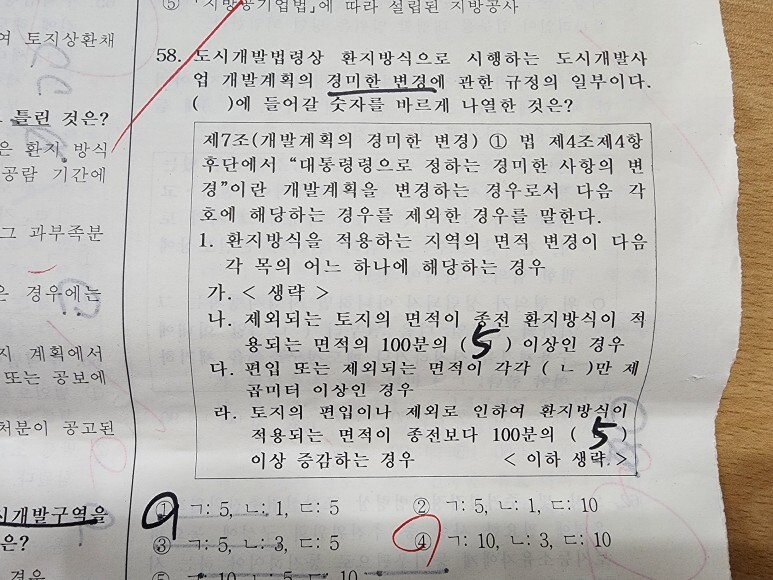 ⑤ 「지방공기업법」에 따라 설립된 지방공사
여 토지상환채
58. 도시개발법령상 환지방식으로 시행하는 도시개발사
업 개발계획의 경미한 변경에 관한 규정의 일부이다.
( )에 들어갈 숫자를 바르게 나열한 것은?
틀린 것은?
은 환지 방식
공람 기간에
그 과부족분
은 경우에는
지 계획에서
또는 공보에
처분이 공고된
시개발구역을
은?
제7조(개발계획의 경미한 변경) ① 법 제4조제4항
후단에서 "대통령령으로 정하는 경미한 사항의 변
경"이란 개발계획을 변경하는 경우로서 다음 각
호에 해당하는 경우를 제외한 경우를 말한다.
1. 환지방식을 적용하는 지역의 면적 변경이 다음
각 목의 어느 하나에 해당하는 경우
가. < 생략 >
나. 제외되는 토지의 면적이 종전 환지방식이 적
용되는 면적의 100분의 ( 5 ) 이상인 경우
다. 편입 또는 제외되는 면적이 각각 ( ㄴ )만 제
곱미터 이상인 경우
라. 토지의 편입이나 제외로 인하여 환지방식이
적용되는 면적이 종전보다 100분의 ( 5 )
이상 증감하는 경우 < 이하 생략 >
① ㄱ: 5, ㄴ: 1, ㄷ: 5 ② ㄱ: 5, ㄴ: 1, ㄷ: 10
③ ㄱ: 5, ㄴ: 3, ㄷ: 5 ④ ㄱ: 10, ㄴ: 3, ㄷ: 10